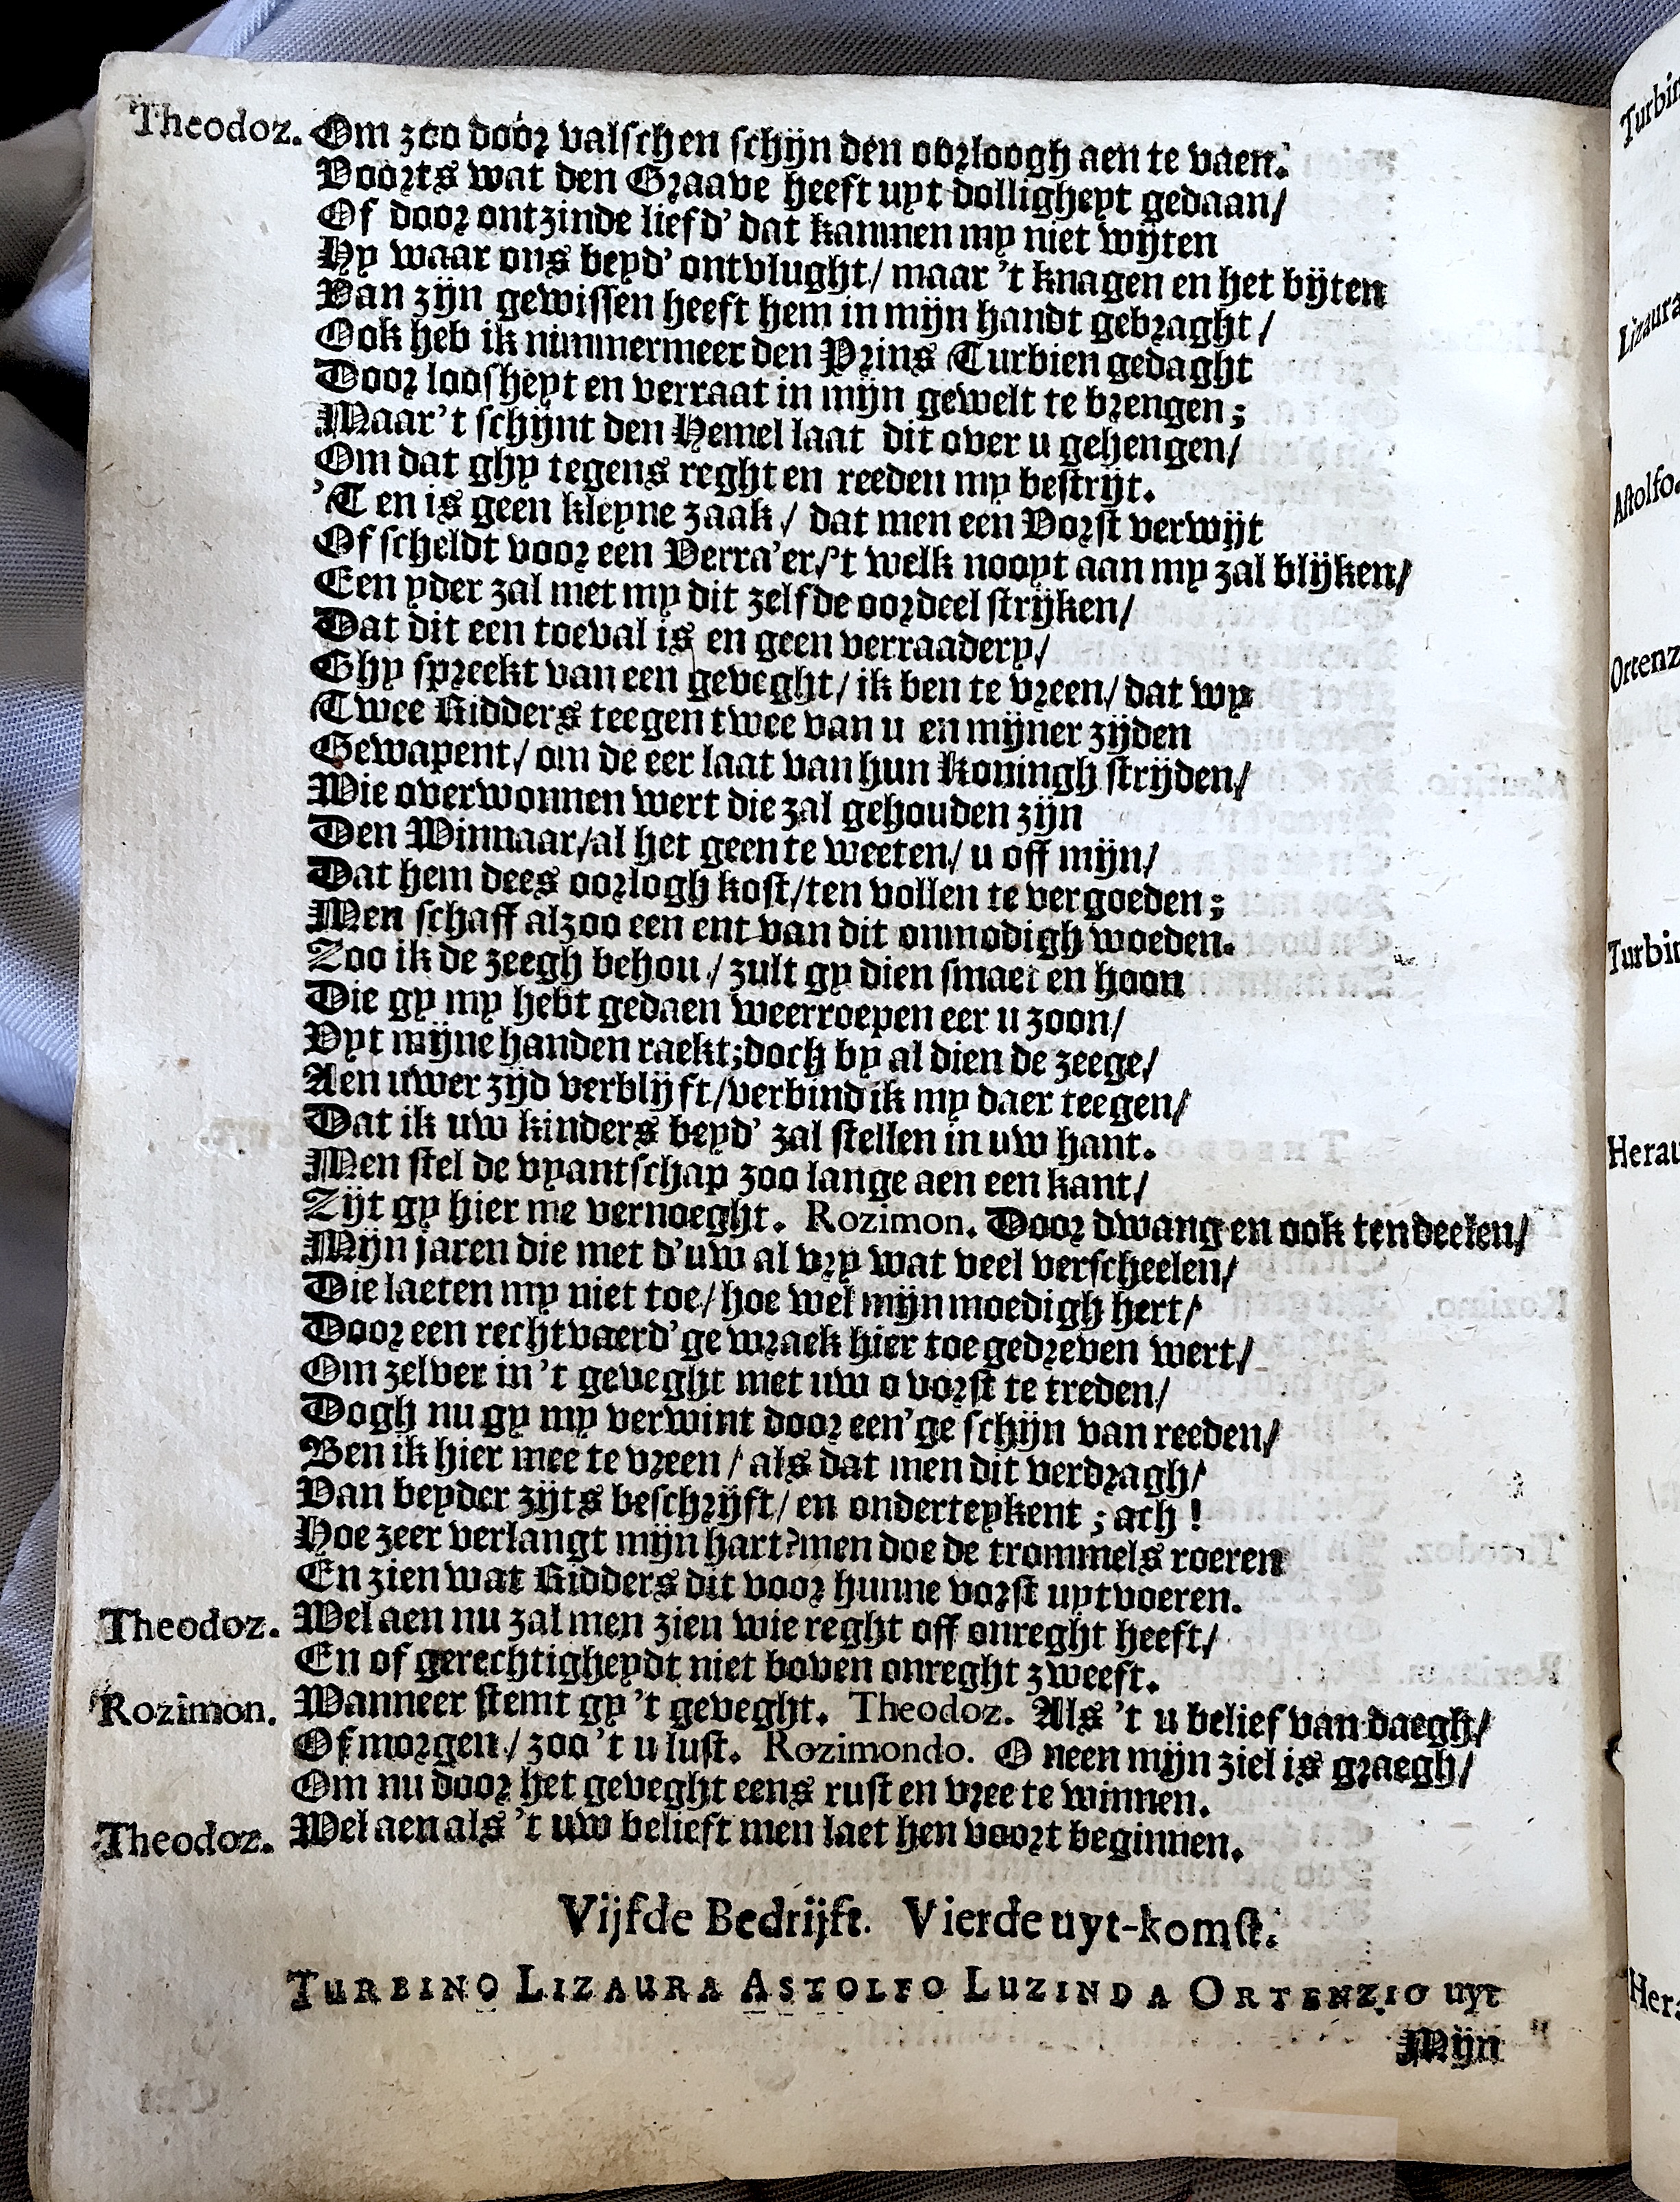 Theodoz. Om zoo door valschen schijn den oorloogh aen te vaen.
Voorts wat den Graave heeft uyt dolligheyt gedaan/
Of door ontzinde liefd' dat kannen my niet wijten
Hy waar ons beyd' ontvlught/ maar 't knagen en het bijten
Van zijn gewissen heeft hem in mijn handt gebraght/
Ook heb ik nimmermeer den Prins Turbien gedaght
Door loosheyt en verraat in mijn gewelt te brengen;
Maar 't schijnt den Hemel laat dit over u gehengen/
Om dat ghy tegens reght en reeden my bestrijt.
'T en is geen kleyne zaak/ dat men een Vorst verwijt
Of scheldt voor een Verra'er/'t welk nooyt aan my zal blijken/
Een yder zal met my dit zelfde oordeel strijken/
Dat dit een toeval is en geen verraadery/
Ghy spreekt van een geveght/ ik ben te vreen/ dat wy
Twee Ridders teegen twee van u en mijner zijden
Gewapent/ om de eer laat van hun Koningh strijden/
Wie overwonnen wert die zal gehouden zijn
Den Winnaar/al het geen te weeten/ u off mijn/
Dat hem dees oorlogh kost/ten vollen te vergoeden;
Men schaff alzoo een ent van dit onmodigh woeden.
Zoo ik de zeegh behou/ zult gy dien smaet en hoon
Die gy my hebt gedaen weerroepen eer u zoon/
Uyt mijne handen raekt;doch by al dien de zeege/
Aen uwer zijd verblijft/verbind ik my daer teegen/
Dat ik uw kinders beyd' zal stellen in uw hant.
Men stel de vyantschap zoo lange aen een kant/
Zijt gy hier me vernoeght. Rozimon. Door dwang en ook ten deelen/
Mijn jaren die met d'uw al vry wat veel verscheelen/
Die laeten my niet toe/ hoe wel mijn moedigh hert/
Door een rechtvaerd'ge wraek hier toe gedreven wert/
Om zelver in 't geveght met uw o vorst te treden/
Dogh nu gy my verwint door een'ge schijn van reeden/
Ben ik hier mee te vreen/ als dat men dit verdragh/
Van beyder zijts beschrijft/ en onderteykent; ach!
Hoe zeer verlangt mijn hart?men doe de trommels roeren
En zien wat Ridders dit voor hunne vorst uytvoeren.
Theodoz. Wel aen nu zal men zien wie reght off onreght heeft/
En of gerechtigheydt niet boven onreght zweeft.
Rozimon. Wanneer stemt gy 't geveght. Theodoz. Als 't u belief van daegh/
Of morgen/ zoo 't u lust. Rozimondo. O neen mijn ziel is graegh/
Om nu door het geveght eens rust en vree te winnen.
Theodoz. Wel aen als 't uw belieft men laet hen voort beginnen.
Vijfde Bedrijft. Vierde uyt-komst.
TURBINO LIZAURA ASTOLFO LUZINDA ORTENZIO uyt
Mijn
Lizaura
Astolfo.
Ortenz
Turbin
Herau
Hera